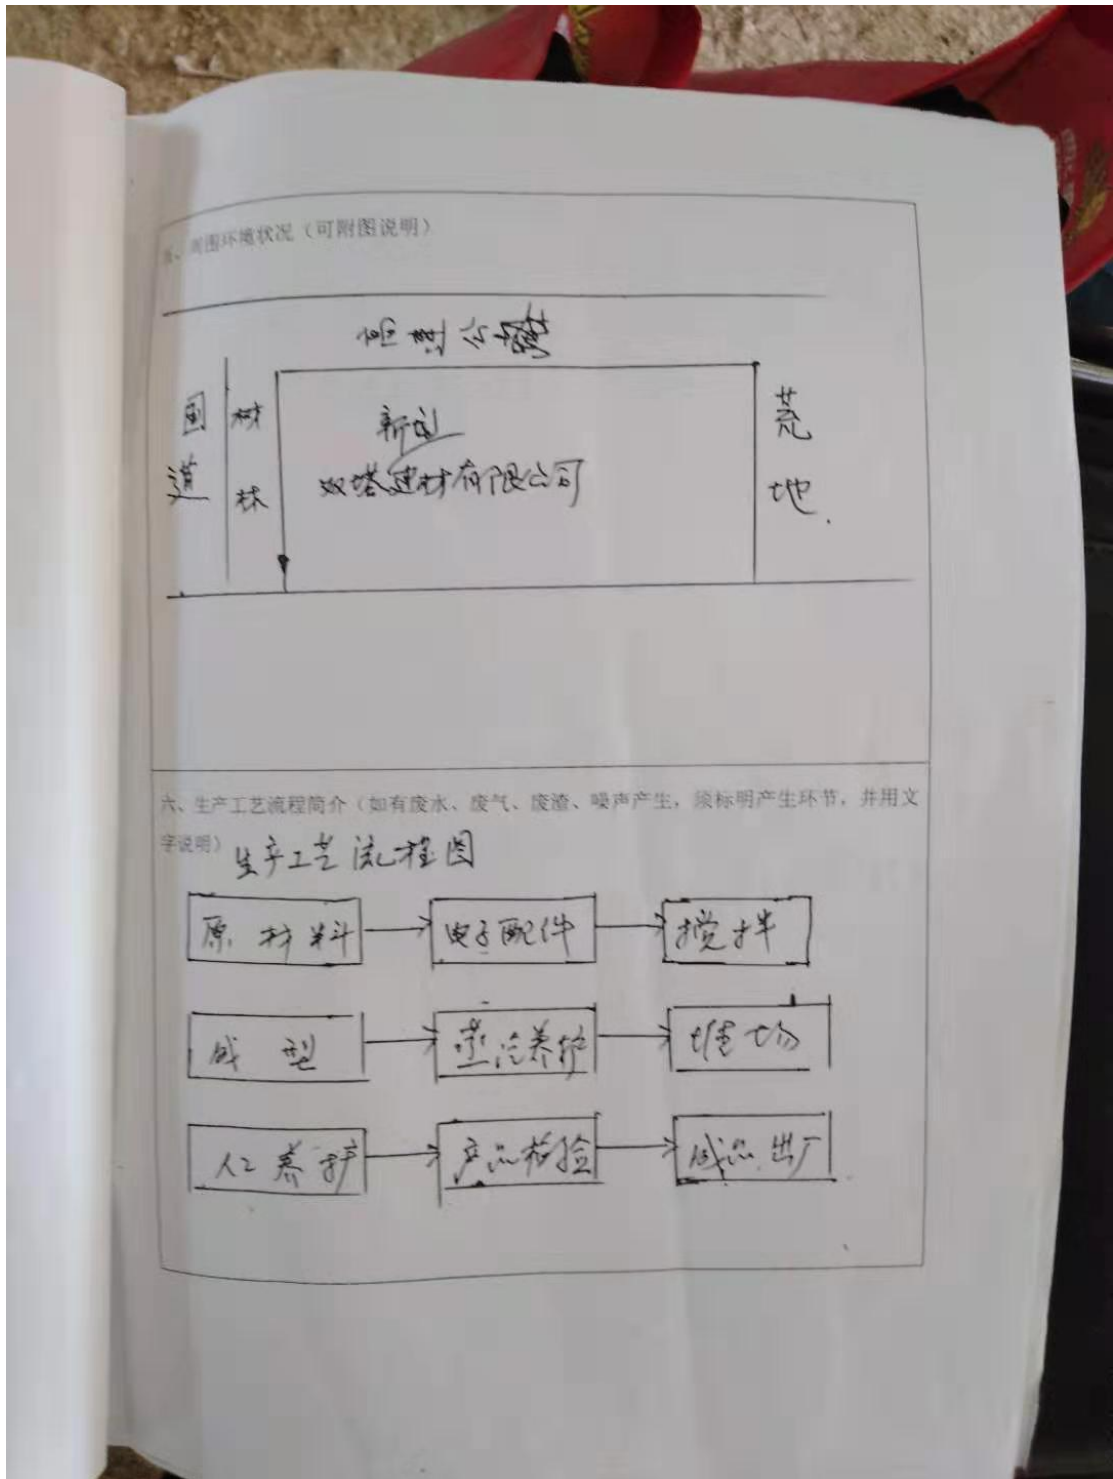 五、周围环境状况（可附图说明）
公路
国道
树林
新建
双塔建材有限公司
荒地
六、生产工艺流程简介（如有废水、废气、废渣、噪声产生，须标明产生环节，并用文
字说明）
生产工艺流程图
原材料 电子配件 搅拌
成型 蒸汽养护 堆场
人工养护 产品检验 成品出厂